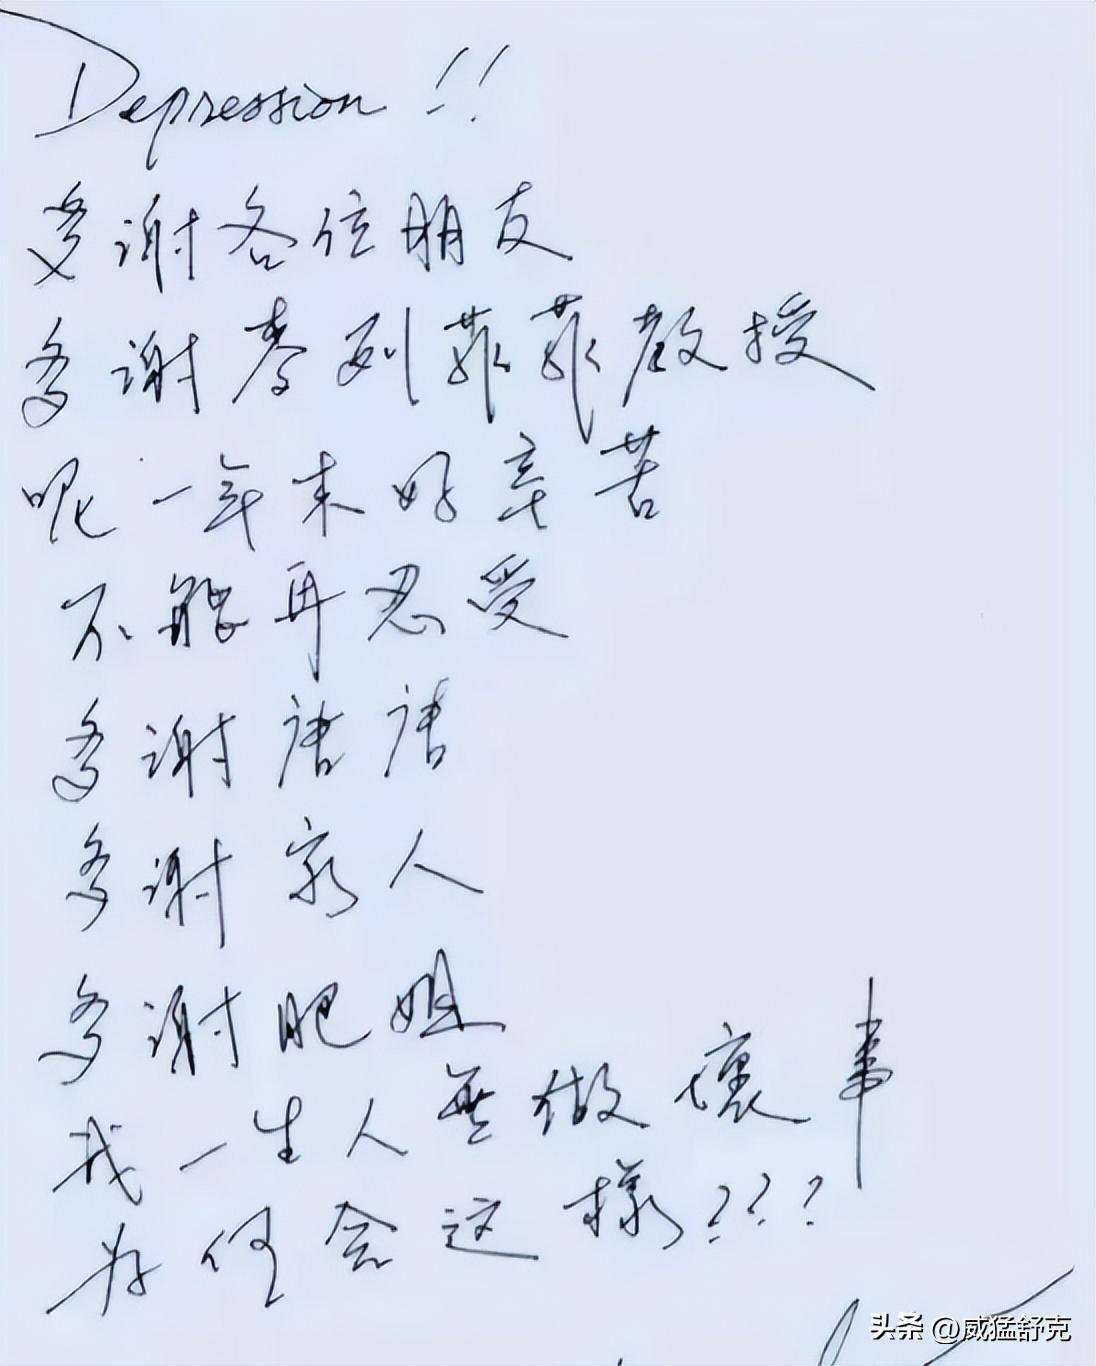 Depression!!
多謝各位朋友
多謝麥列菲菲教授
呢一年來好辛苦
不能再忍受
多謝唐唐
多謝家人
多謝肥姐
我一生人無做壞事
为何会这樣???
头条 @威猛舒克